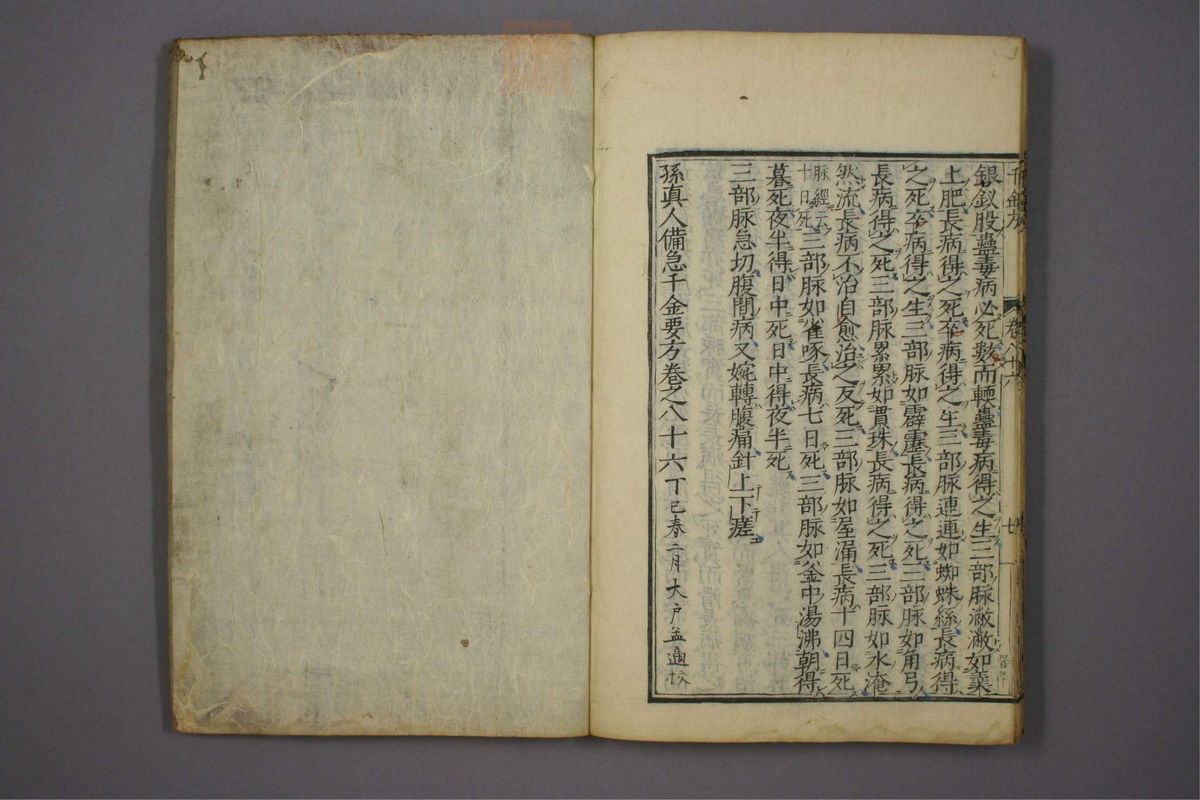 千金方 卷八十六 廿
銀釵股蠱毒病必死數而輭蠱毒病得之生三部脉潎潎如羹
上肥長病得之死卒病得之生三部脉連連如蜘蛛絲長病得
之死卒病得之生三部脉如霹靂長病得之死三部脉如角弓
長病得之死三部脉累累如貫珠長病得之死三部脉如水淹
然流長病不治自愈治之反死三部脉如屋漏長病十四日死
脉經云
十日死
三部脉如雀啄長病七日死三部脉如釜中湯沸朝得
暮死夜半得日中死日中得夜半死
三部脉急切腹間病又婉轉腹痛針上下瘥
孫真人備急千金要方卷之八十六
丁巳春二月大戸孟適校